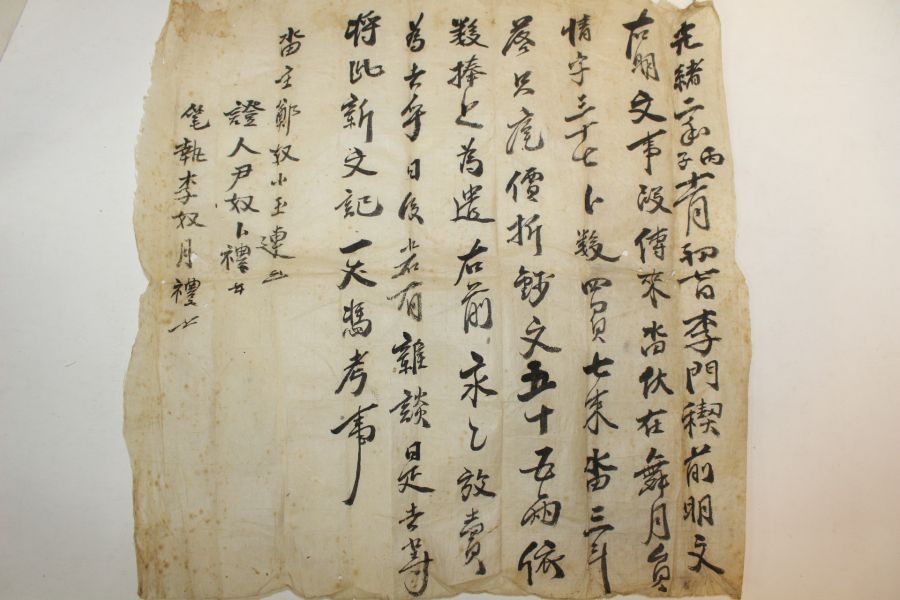 光緒二年丙子十一月初二日李門稧前明文
右明文事段傳來畓伏在舞月員
情字三十七卜數四負七束畓三斗
落只庫價折錢文五十五兩依
數捧上為遣右前永永放賣
為去乎日後若有雜談是去等
將此新文記一文憑考事
畓主鄭奴小玉連
證人尹奴卜禮
筆執李奴月禮